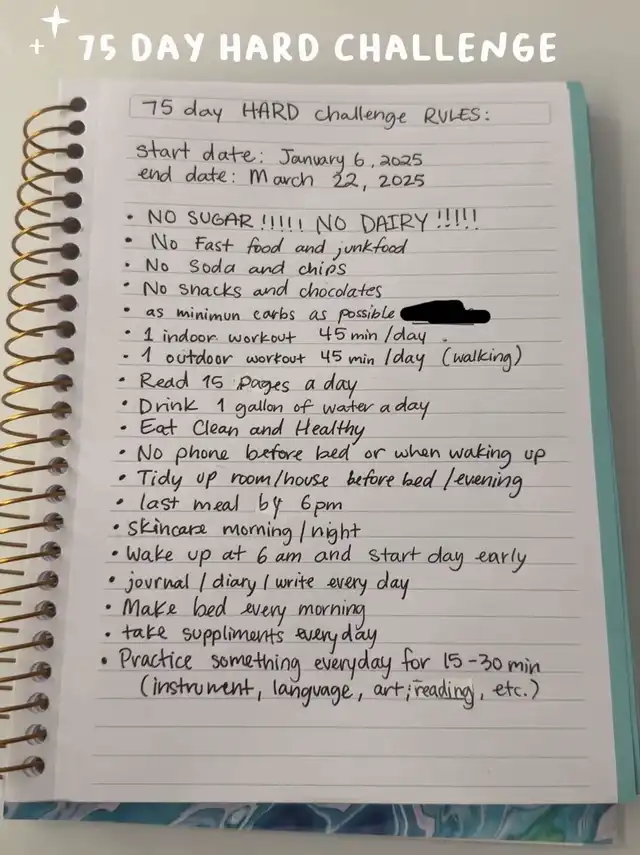 75 DAY HARD CHALLENGE
75 day HARD challenge RULES:
start date: January 6, 2025
end date: March 22, 2025
• NO SUGAR!!!!! NO DAIRY!!!!!
• No Fast food and junkfood
• No Soda and chips
• No snacks and chocolates
• as minimun carbs as possible
• 1 indoor workout 45 min/day.
• 1 outdoor workout 45 min/day (walking)
• Read 15 Pages a day
• Drink 1 gallon of water a day
• Eat Clean and Healthy
• No phone before bed or when waking up
• Tidy up room/house before bed/evening
• last meal by 6pm
• skincare morning/night
• Wake up at 6am and start day early
• journal/diary/write every day
• Make bed every morning
• take suppliments everyday
• Practice something everyday for 15-30 min
(instrument, language, art, reading, etc.)